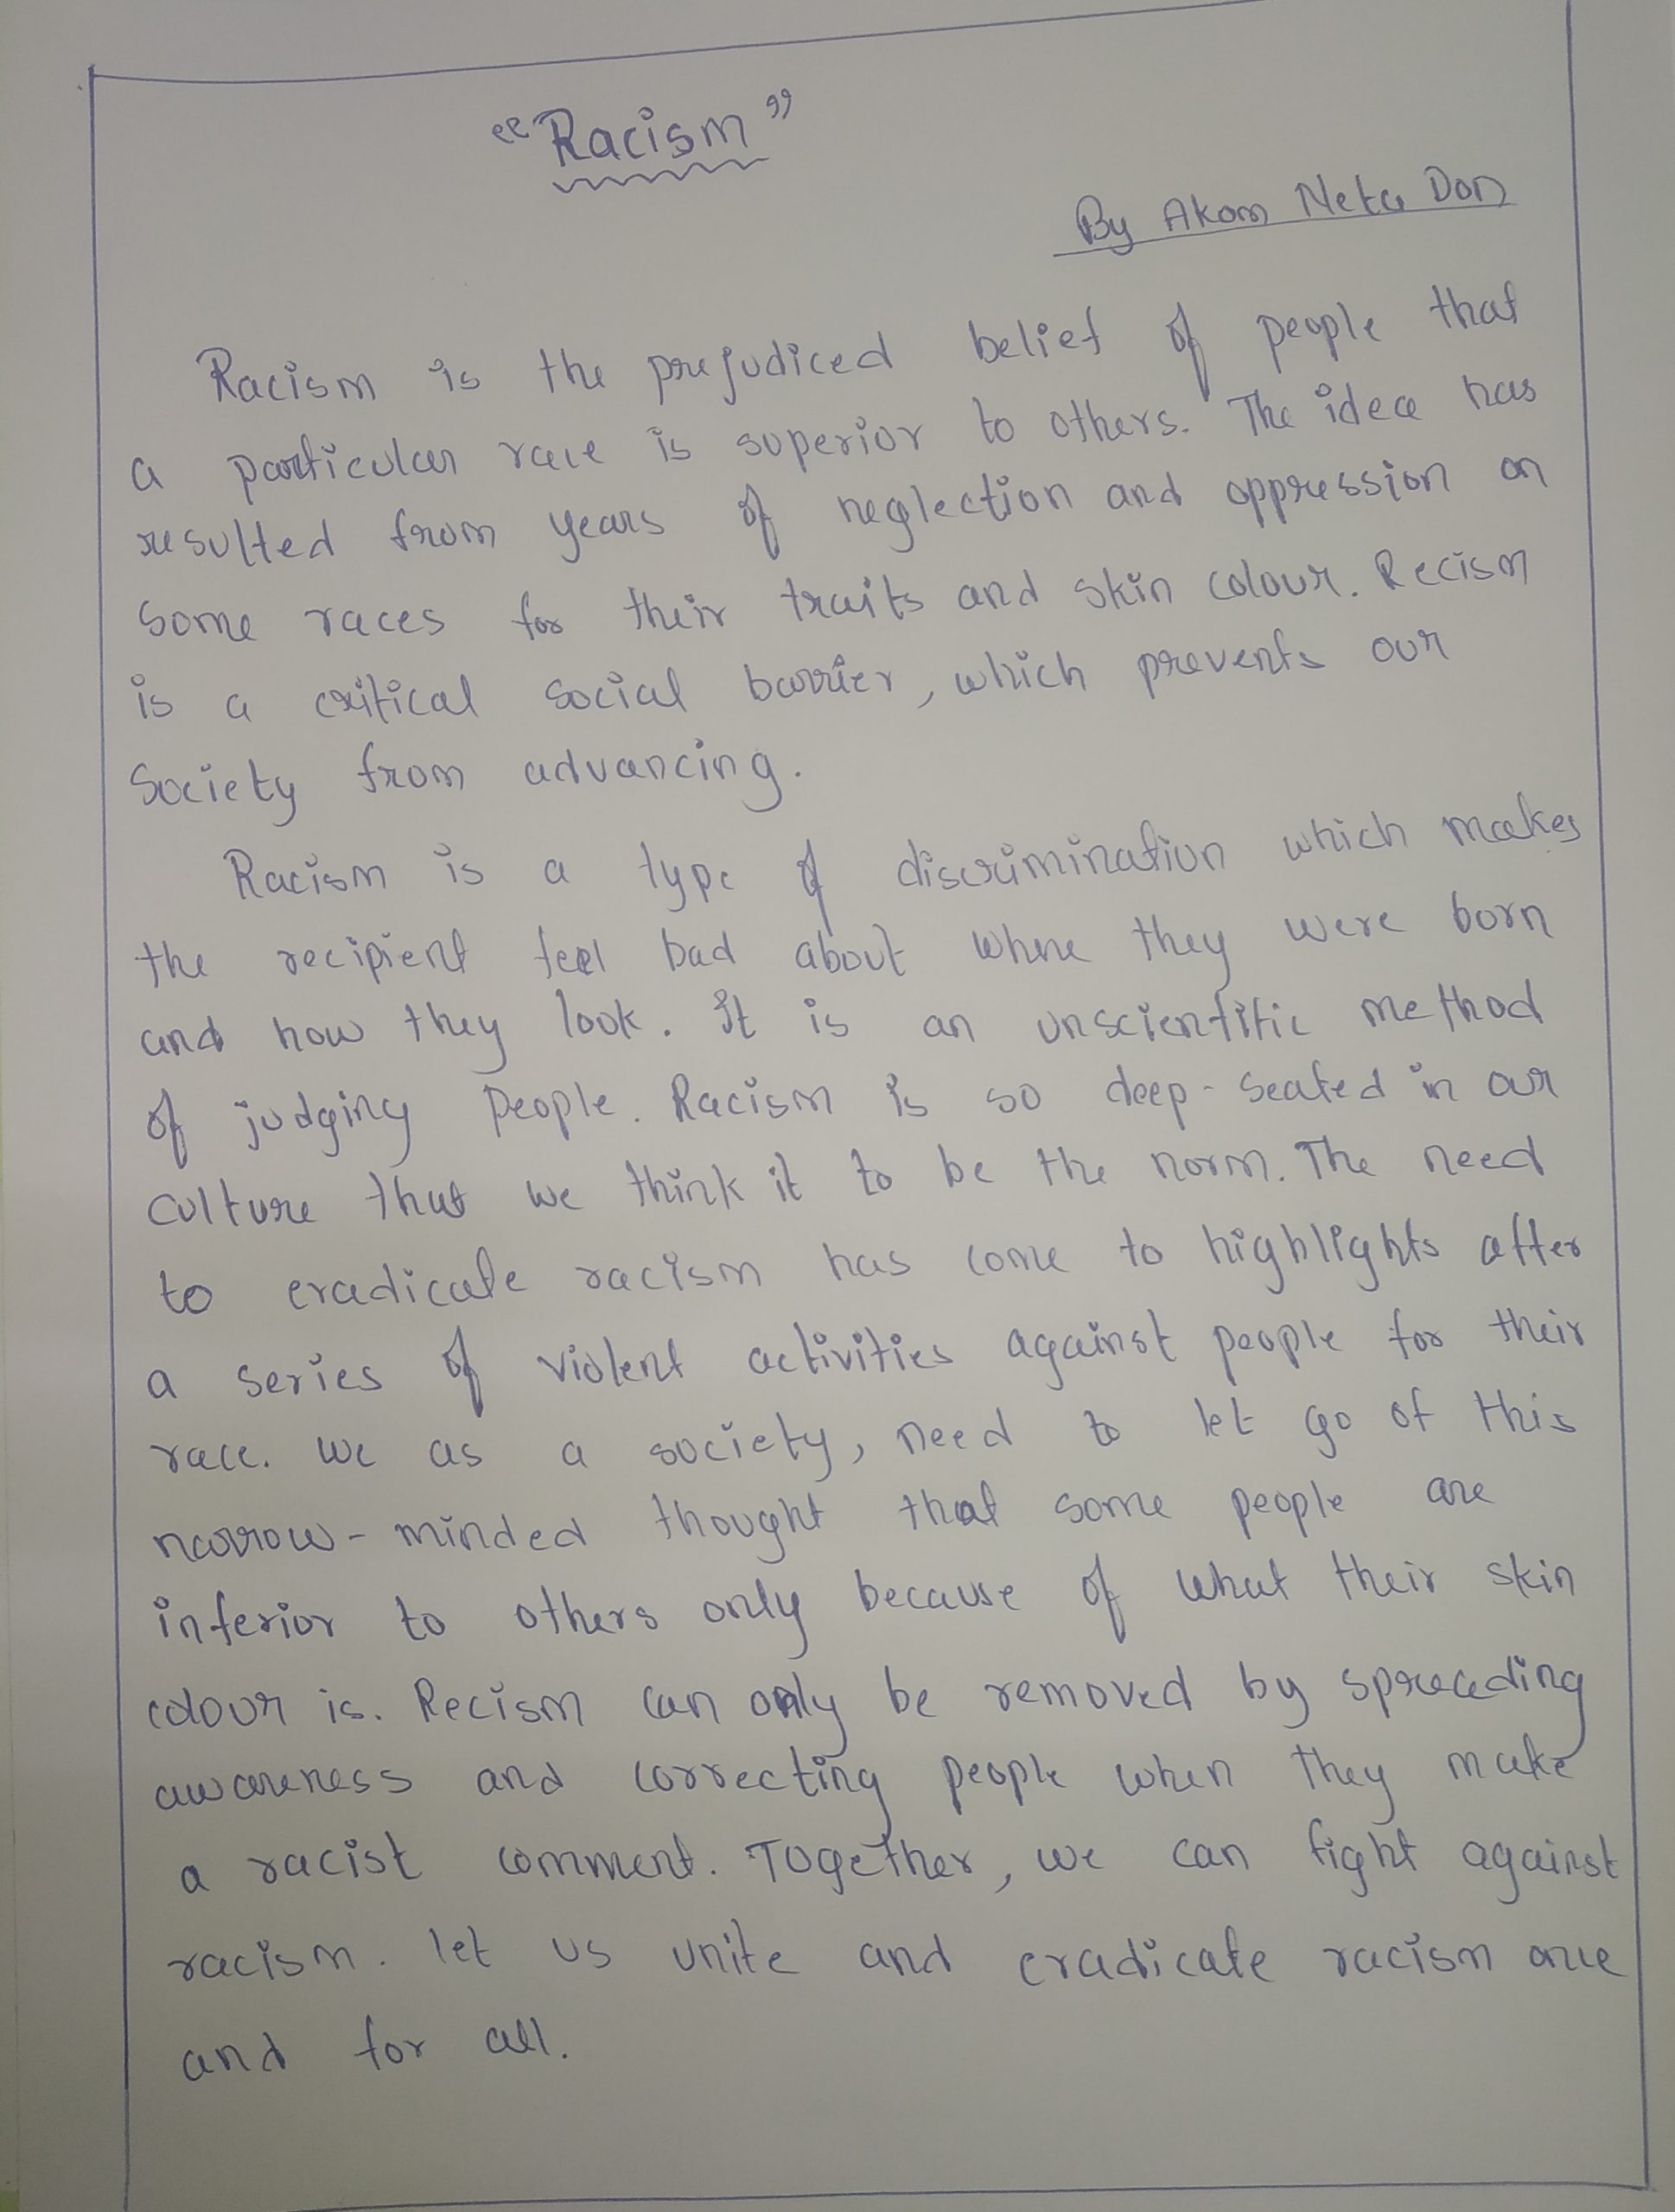 "Racism"
By Akom Neta Don
Racism is the prejudiced belief of people that
a particular race is superior to others. The idea has
resulted from years of neglection and oppression on
some races for their traits and skin colour. Recism
is a critical social barrier, which prevents our
Society from advancing.
Racism is a type of discrimination which makes
the recipient feel bad about where they were born
and how they look. It is an unscientific method
of judging people. Racism is so deep-seated in our
culture that we think it to be the norm. The need
to eradicate racism has come to highlights after
a series of violent activities against people for their
race. We as a society, need to let go of this
narrow-minded thought that some people are
inferior to others only because of what their skin
colour is. Recism can only be removed by spreading
awareness and correcting people when they make
a racist comment. Together, we can fight against
racism. let us unite and eradicate racism once
and for all.